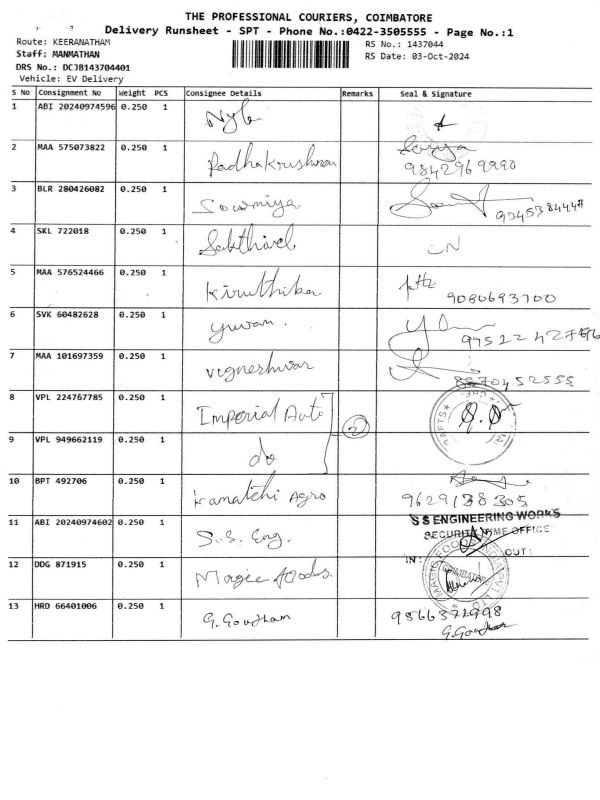 THE PROFESSIONAL COURIERS, COIMBATORE
Delivery Runsheet - SPT - Phone No.:0422-3505555 - Page No.:1
Route: KEERANATHAM
RS No.: 1437044
Staff: MANMATHAN
RS Date: 03-Oct-2024
DRS No.: DCJB143704401
Vehicle: EV Delivery
S No Consignment No Weight PCS Consignee Details Remarks Seal & Signature
1 ABI 20240974596 0.250 1
2 MAA 575073822 0.250 1 Radhakrushnan
9842969990
3 BLR 280426082 0.250 1 Sowmiya
4 SKL 722018 0.250 1 Sakthivel
5 MAA 576524466 0.250 1 Kiruthika
9080693700
6 SVK 60482628 0.250 1 yuvan.
7 MAA 101697359 0.250 1 vigneshwar
8 VPL 224767785 0.250 1 Imperial Auto
2
9 VPL 949662119 0.250 1 do
10 BPT 492706 0.250 1 Kamatchi Agro
9629138305
11 ABI 20240974602 0.250 1 S.S. Eng.
S S ENGINEERING WORKS
SECURITY TIME OFFICE
IN: OUT:
12 DDG 871915 0.250 1 Magic foods.
COIMBATORE
13 HRD 66401006 0.250 1 G. Goutham
G. Goutham